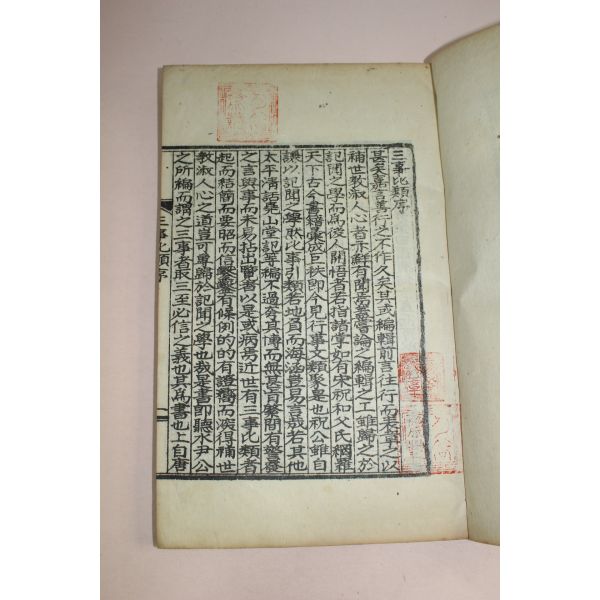 三事比類序
甚矣嘉言善行之不作久矣其或編輯前言往行而表章之以
補世敎淑人心者亦鮮有聞焉蓋嘗論之編輯之工雖歸之於
記聞之學而爲後人開悟者若指諸掌如有宋祝和父氏網羅
天下古今書籍彙成巨秩卽今見行事文類聚是也祝公雖自
謙以記聞之學然比事引類若地負而海涵豈易言哉若其他
太平淸話堯山堂記等編不過夸其博而無甚肯綮間有警發
之言與事而未易拈出覽者以是或病焉近世有三事比類者
起而結簡而要昭而信鑿鑿有條例的的有證嚮而深得補世
敎淑人心之道豈可專歸於記聞之學也哉是書卽聽水尹公
之所編而謂之三事者取三至必信之義也其爲書也上自唐
三事比類序